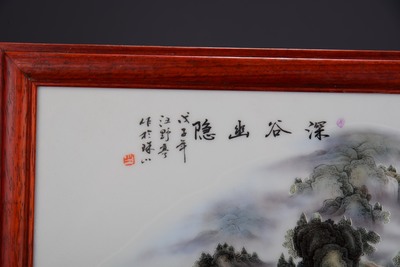 深谷幽隐
戊子年
汪野亭
作於珠山